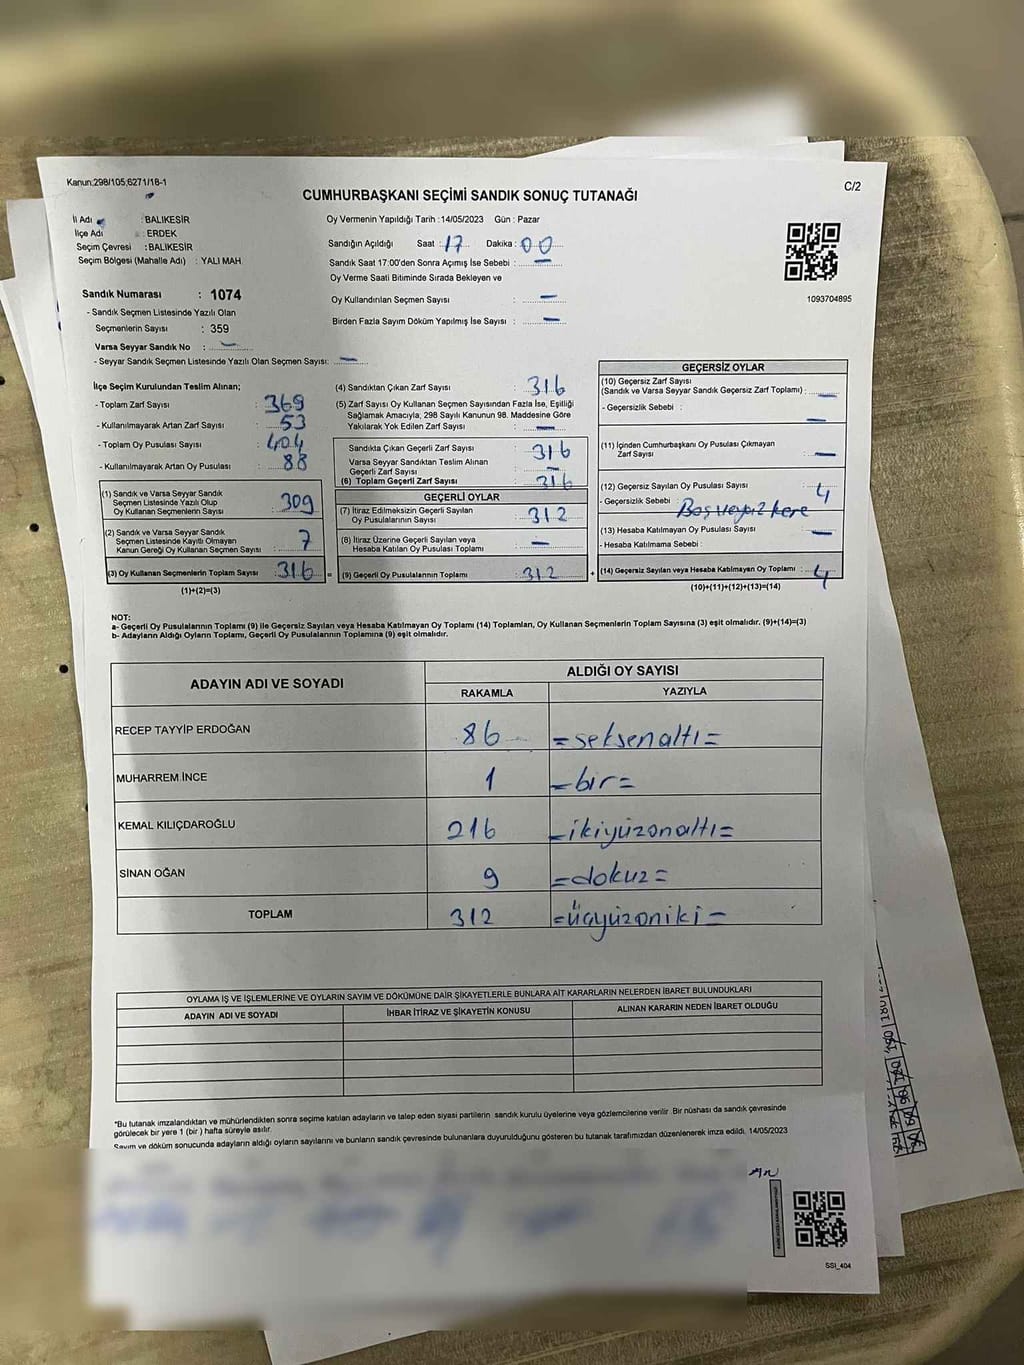 Kanun;298/105;6271/18-1
CUMHURBAŞKANI SEÇİMİ SANDIK SONUÇ TUTANAĞI
C/2
İl Adı : BALIKESİR
İlçe Adı : ERDEK
Seçim Çevresi : BALIKESİR
Seçim Bölgesi (Mahalle Adı) : YALI MAH.
Sandık Numarası : 1074
- Sandık Seçmen Listesinde Yazılı Olan
Seçmenlerin Sayısı : 359
Varsa Seyyar Sandık No : —
- Seyyar Sandık Seçmen Listesinde Yazılı Olan Seçmen Sayısı: —
Oy Vermenin Yapıldığı Tarih :14/05/2023 Gün : Pazar
Sandığın Açıldığı Saat : 17 Dakika : 00
Sandık Saat 17:00'den Sonra Açımış İse Sebebi : —
Oy Verme Saati Bitiminde Sırada Bekleyen ve
Oy Kullandırılan Seçmen Sayısı : —
Birden Fazla Sayım Döküm Yapılmış İse Sayısı : —
1093704895
İlçe Seçim Kurulundan Teslim Alınan;
- Toplam Zarf Sayısı : 369
- Kullanılmayarak Artan Zarf Sayısı : 53
- Toplam Oy Pusulası Sayısı : 404
- Kullanılmayarak Artan Oy Pusulası : 88
(1) Sandık ve Varsa Seyyar Sandık
Seçmen Listesinde Yazılı Olup
Oy Kullanan Seçmenlerin Sayısı : 309
(2) Sandık ve Varsa Seyyar Sandık
Seçmen Listesinde Kayıtlı Olmayan
Kanun Gereği Oy Kullanan Seçmen Sayısı : 7
(3) Oy Kullanan Seçmenlerin Toplam Sayısı : 316
(1)+(2)=(3)
(4) Sandıktan Çıkan Zarf Sayısı : 316
(5) Zarf Sayısı Oy Kullanan Seçmen Sayısından Fazla İse, Eşitliği
Sağlamak Amacıyla, 298 Sayılı Kanunun 98. Maddesine Göre
Yakılarak Yok Edilen Zarf Sayısı : —
Sandıkta Çıkan Geçerli Zarf Sayısı : 316
Varsa Seyyar Sandıktan Teslim Alınan
Geçerli Zarf Sayısı : —
(6) Toplam Geçerli Zarf Sayısı : 316
GEÇERLİ OYLAR
(7) İtiraz Edilmeksizin Geçerli Sayılan
Oy Pusulalarının Sayısı : 312
(8) İtiraz Üzerine Geçerli Sayılan veya
Hesaba Katılan Oy Pusulası Toplamı : —
= (9) Geçerli Oy Pusulalarının Toplamı : 312 +
GEÇERSİZ OYLAR
(10) Geçersiz Zarf Sayısı
(Sandık ve Varsa Seyyar Sandık Geçersiz Zarf Toplamı) : —
- Geçersizlik Sebebi : —
(11) İçinden Cumhurbaşkanı Oy Pusulası Çıkmayan
Zarf Sayısı : —
(12) Geçersiz Sayılan Oy Pusulası Sayısı : 4
- Geçersizlik Sebebi :
(13) Hesaba Katılmayan Oy Pusulası Sayısı : —
- Hesaba Katılmama Sebebi :
(14) Geçersiz Sayılan veya Hesaba Katılmayan Oy Toplamı : 4
(10)+(11)+(12)+(13)=(14)
NOT:
a- Geçerli Oy Pusulalarının Toplamı (9) ile Geçersiz Sayılan veya Hesaba Katılmayan Oy Toplamı (14) Toplamları, Oy Kullanan Seçmenlerin Toplam Sayısına (3) eşit olmalıdır. (9)+(14)=(3)
b- Adayların Aldığı Oyların Toplamı, Geçerli Oy Pusulalarının Toplamına (9) eşit olmalıdır.
ADAYIN ADI VE SOYADI ALDIĞI OY SAYISI
RAKAMLA YAZIYLA
RECEP TAYYİP ERDOĞAN 86 =seksenaltı=
MUHARREM İNCE 1 =bir=
KEMAL KILIÇDAROĞLU 216 =ikiyüzonaltı=
SİNAN OĞAN 9 =dokuz=
TOPLAM 312 =üçyüzoniki=
OYLAMA İŞ VE İŞLEMLERİNE VE OYLARIN SAYIM VE DÖKÜMÜNE DAİR ŞİKAYETLERLE BUNLARA AİT KARARLARIN NELERDEN İBARET BULUNDUKLARI
ADAYIN ADI VE SOYADI İHBAR İTİRAZ VE ŞİKAYETİN KONUSU ALINAN KARARIN NEDEN İBARET OLDUĞU
*Bu tutanak imzalandıktan ve mühürlendikten sonra seçime katılan adayların ve talep eden siyasi partilerin sandık kurulu üyelerine veya gözlemcilerine verilir. Bir nüshası da sandık çevresinde
görülecek bir yere 1 (bir) hafta süreyle asılır.
Sayım ve döküm sonucunda adayların aldığı oyların sayılarını ve bunların sandık çevresinde bulunanlara duyurulduğunu gösteren bu tutanak tarafımızdan düzenlenerek imza edildi. 14/05/2023
SSI_404